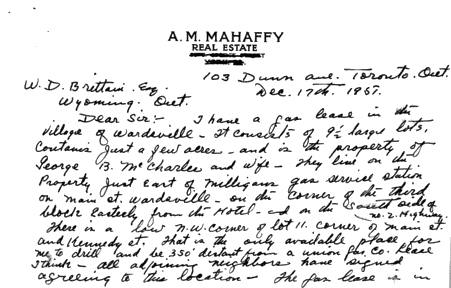 A. M. MAHAFFY
REAL ESTATE
103 Dunn ave. Toronto. Ont.
Dec. 17th. 1957.
W. D. Brittain. Esq.
Wyoming. Ont.
Dear Sir:- I have a gas lease in the
village of Wardsville - It consists of 9½ large lots,
Contains Just a few acres - and is the property of
George B. McCharles and wife - They live on the
Property Just East of Milligans gas service station
on main st. Wardsville - on the corner of the third
block Easterly from the Hotel - and on the South side of
no. 2. Highway.
There is a low N.W. corner of lot 11. corner of main st.
and Kennedy st. That is the only available place for
me to drill and be 350' distant from a union gas. Co. Lease
I think - all adjoining neighbors have signed
agreeing to this location - The gas lease is in